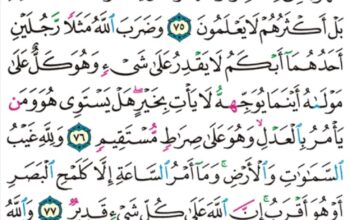 بَلْ أَكْثَرُهُمْ لَا يَعْلَمُونَ ٧٥ وَضَرَبَ اللَّهُ مَثَلًا رَّجُلَيْنِ
أَحَدُهُمَا أَبْكَمُ لَا يَقْدِرُ عَلَىٰ شَيْءٍ وَهُوَ كَلٌّ عَلَىٰ
مَوْلَىٰهُ أَيْنَمَا يُوَجِّههُّ لَا يَأْتِ بِخَيْرٍ هَلْ يَسْتَوِي هُوَ وَمَن
يَأْمُرُ بِالْعَدْلِ وَهُوَ عَلَىٰ صِرَاطٍ مُّسْتَقِيمٍ ٧٦ وَلِلَّهِ غَيْبُ
السَّمَٰوَٰتِ وَالْأَرْضِ وَمَا أَمْرُ السَّاعَةِ إِلَّا كَلَمْحِ الْبَصَرِ
أَوْ هُوَ أَقْرَبُ إِنَّ اللَّهَ عَلَىٰ كُلِّ شَيْءٍ قَدِيرٌ ٧٧ وَاللَّهُ